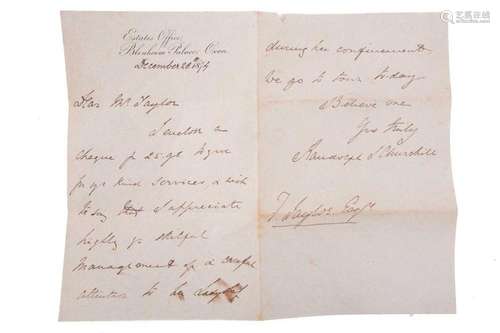 Estates Office,
Blenheim Palace, Oxon.
December 28th 1874
Dear Mr Taylor
I enclose a
cheque for 25.gs to you
for yr kind services, & wish
to say that I appreciate
highly yr skilful
management of & careful
attention to her Ladyship
during her confinement
We go to town to-day
Believe me
Yrs truly
Randolph S Churchill
T. Taylor Esqr